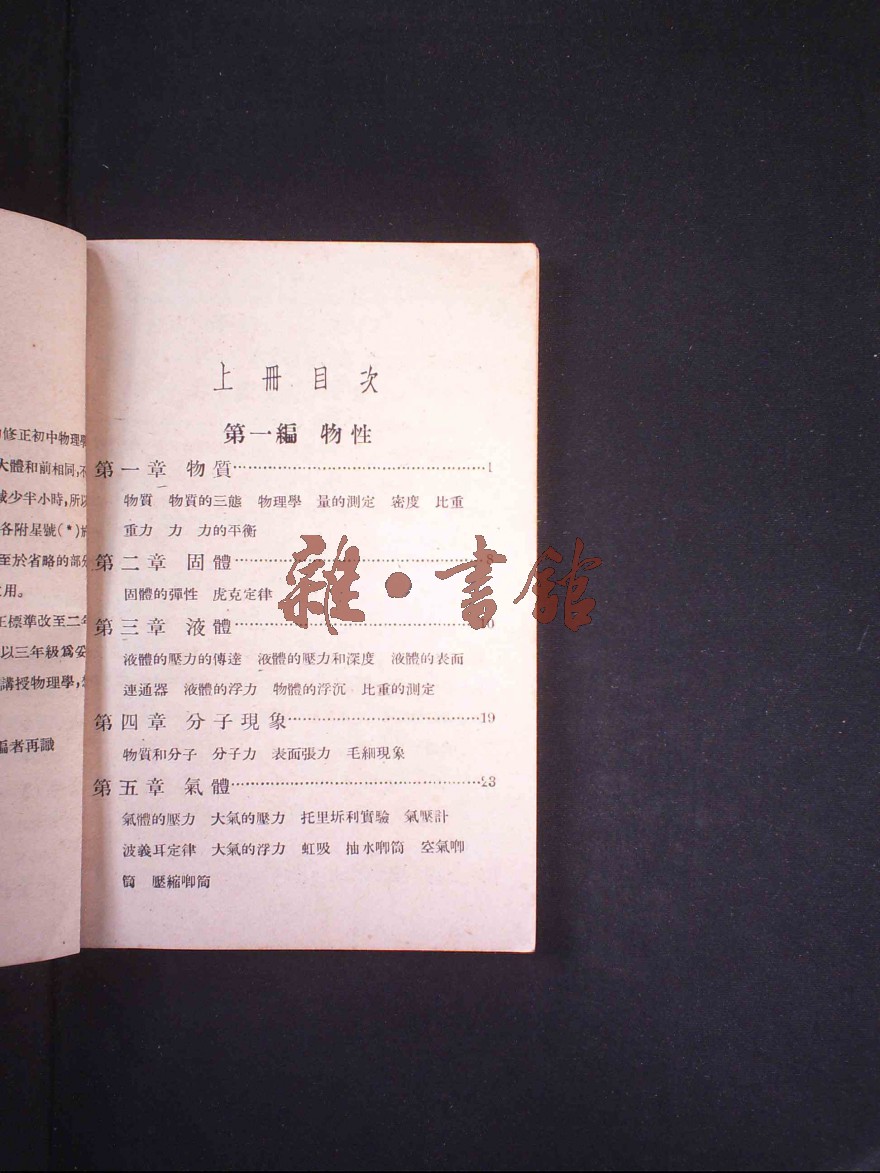 修正初中物理學
大體和前相同,不
減少半小時,所以
各附星號(*)
至於省略的部分
用。
標準改至二年
以三年級爲妥
講授物理學,
編者再識
上冊目次
第一編 物性
第一章 物質……1
物質 物質的三態 物理學 量的測定 密度 比重
重力 力 力的平衡
第二章 固體……8
固體的彈性 虎克定律
第三章 液體……10
液體的壓力的傳達 液體的壓力和深度 液體的表面
連通器 液體的浮力 物體的浮沉 比重的測定
第四章 分子現象……19
物質和分子 分子力 表面張力 毛細現象
第五章 氣體……23
氣體的壓力 大氣的壓力 托里坼利實驗 氣壓計
波義耳定律 大氣的浮力 虹吸 抽水喞筒 空氣喞
筒 壓縮喞筒
雜·書館